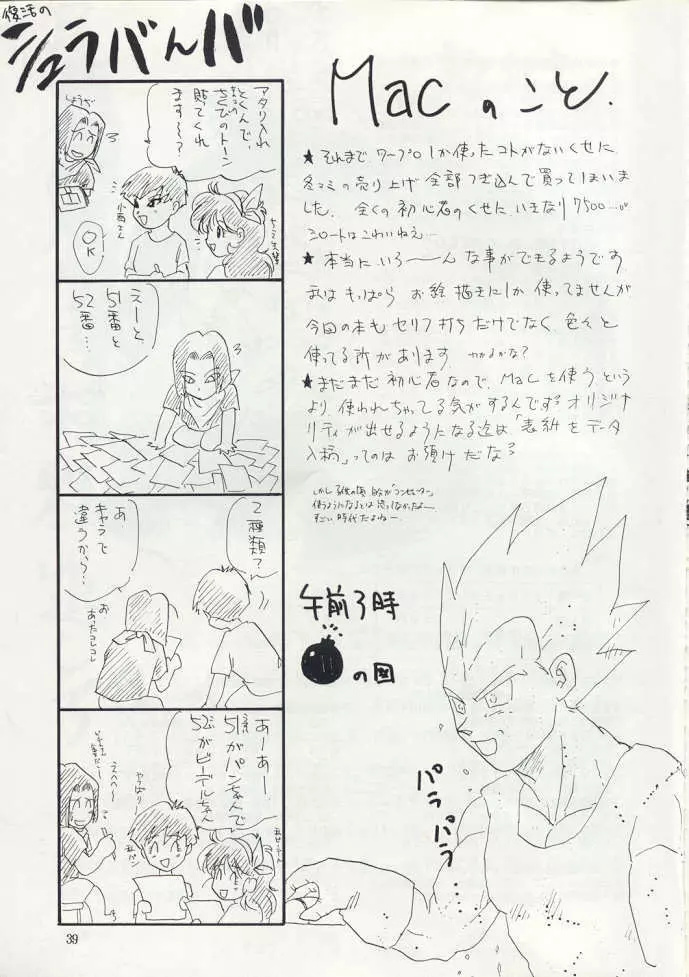 復活の
シュラバんバ
アタリ入れ
とくんで、
さくびのトーン
貼ってくれ
ます〜?
OK
えーと、
51番と
52番…
2種類?
あ
キャラで
違うから?
お
あったコレコレ
あーあー
51がパンちゃんで
52がビーデルちゃん
えへへー
やっぱり
39
Macのこと.
★それまでワープロしか使ったコトがないくせに
冬コミの売り上げ全部つぎ込んで買ってしまいま
した。全くの初心者のくせにいきなり7500…。
シロートはこわいねえ…
★本当にいろーーんな事ができるようです
私はもっぱらお絵描きにしか使ってませんが
今回の本もセリフ打ちだけでなく色々と
使ってる所があります。わかるかな?
★まだまだ初心者なので、Macを使うという
より、使われちゃってる気がするんですがオリジナ
リティが出せるようになる迄は「表紙をデータ
入稿」ってのはお預けだな
使うようになるとは思ってなかったよー
すごい時代だよねー
午前3時
の図
パラ
パラ